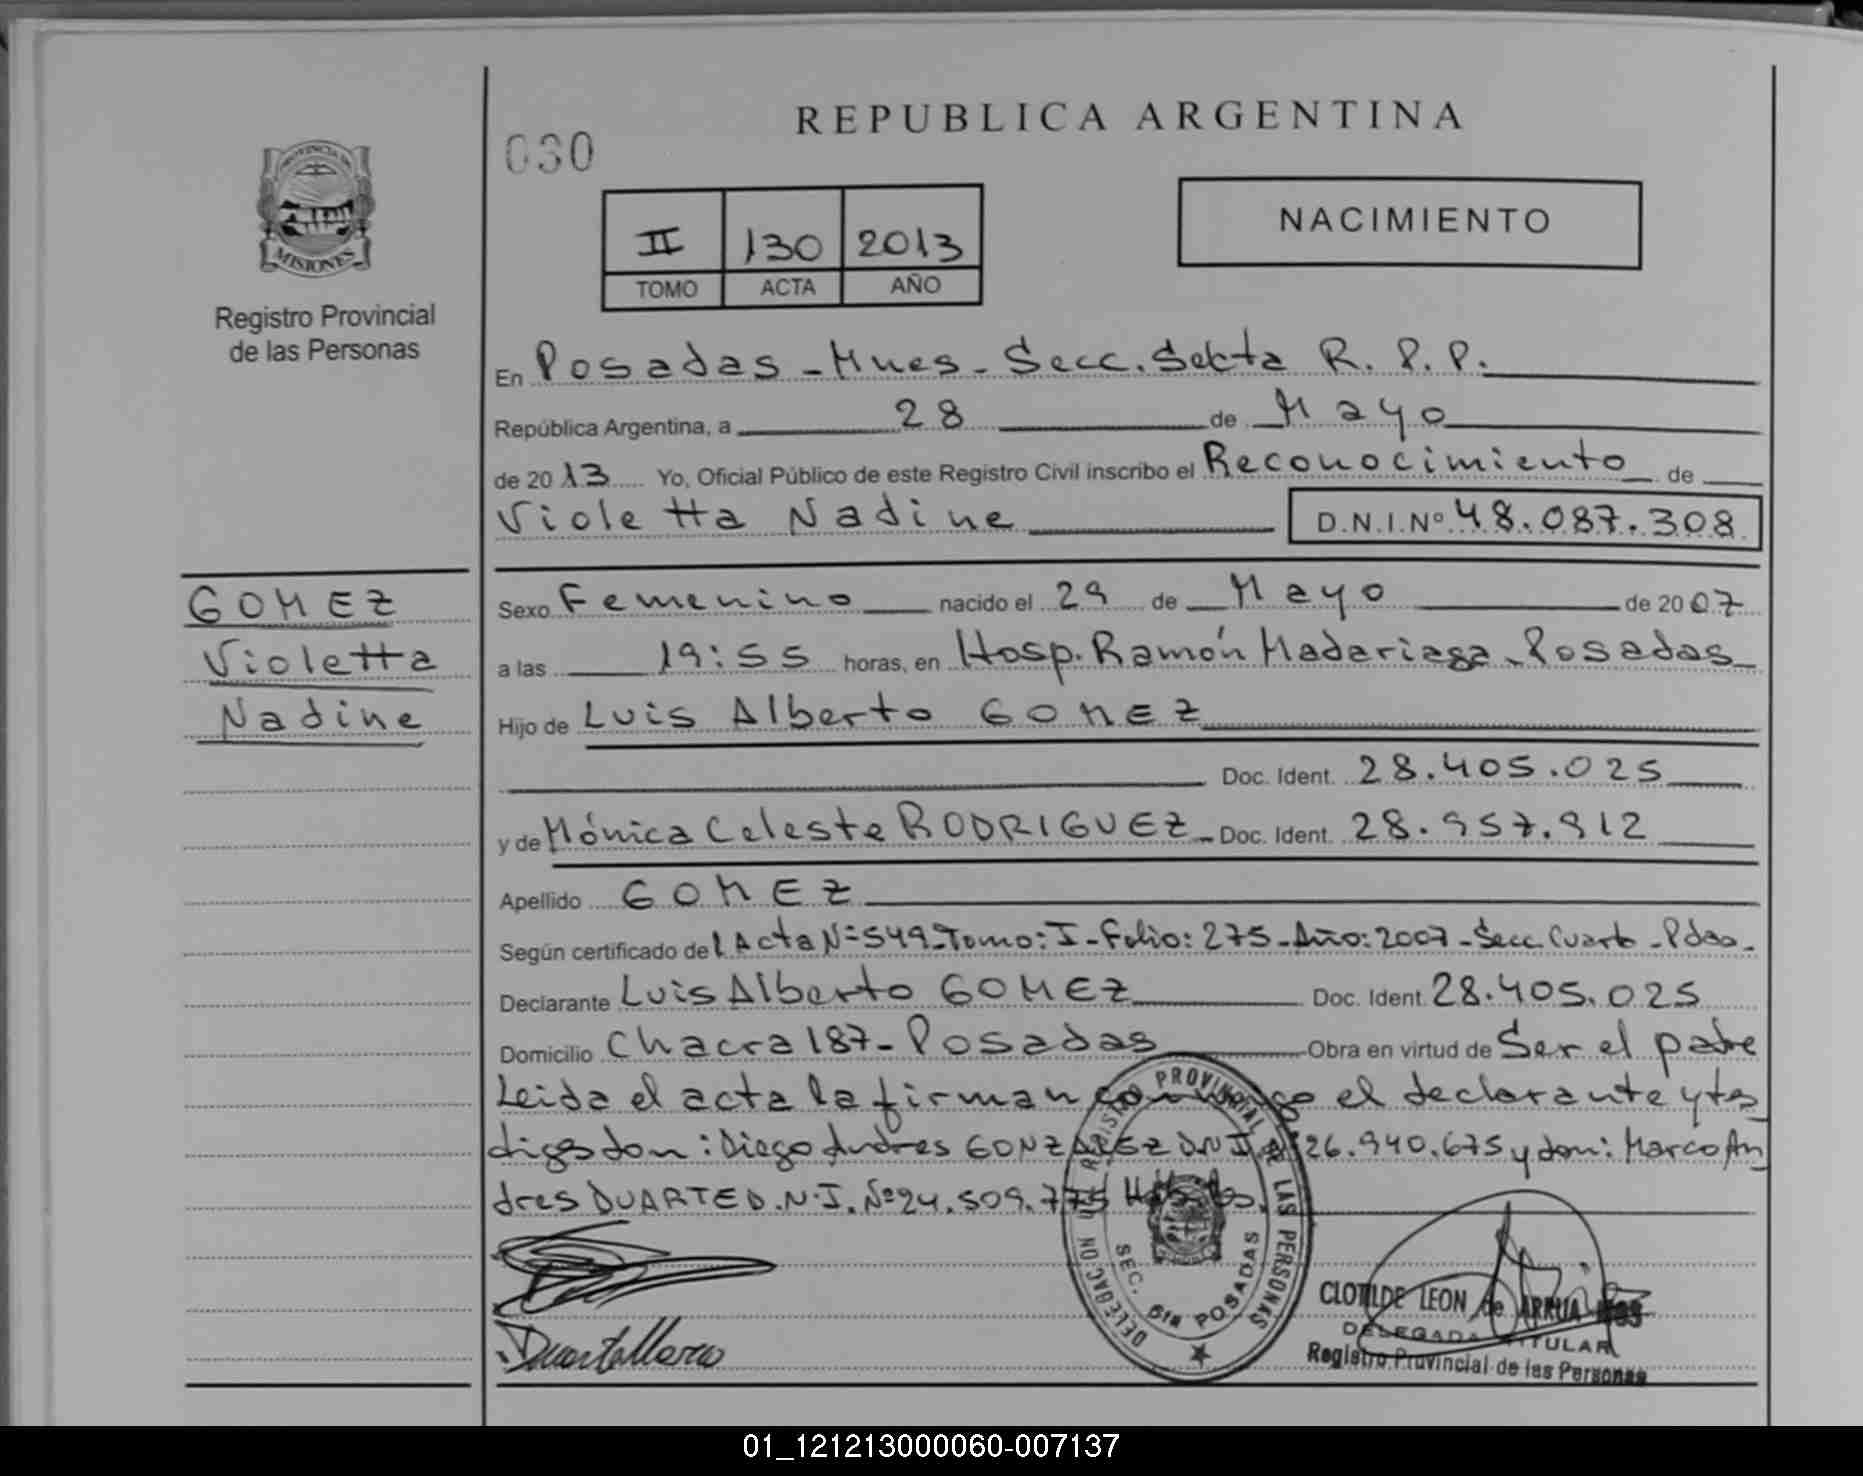 REPUBLICA ARGENTINA
030
PROVINCIA DE
MISIONES
Registro Provincial
de las Personas
II 130 2013
TOMO ACTA AÑO
NACIMIENTO
En Posadas - Mnes - Secc. Sexta R. P. P.
República Argentina, a 28 de Mayo
de 2013 Yo, Oficial Público de este Registro Civil inscribo el Reconocimiento de
Violetta Nadine D.N.I.Nº 48.087.308
GOMEZ
Violetta
Nadine
Sexo Femenino nacido el 29 de Mayo de 2007
a las 19:55 horas, en Hosp. Ramón Madariaga - Posadas
Hijo de Luis Alberto GOMEZ
Doc. Ident. 28.405.025
y de Mónica Celeste RODRIGUEZ - Doc. Ident. 28.957.912
Apellido GOMEZ
Según certificado del Acta Nº 549 - Tomo: I - Folio: 275 - Año: 2007 - Secc. Cuarta - Pdas -
Declarante Luis Alberto GOMEZ Doc. Ident. 28.405.025
Domicilio Chacra 187 - Posadas Obra en virtud de Ser el padre
Leida el acta la firman conmigo el declarante y tes
tigos don: Diego Andres GONZALEZ D.N.I. Nº 26.940.675 y don: Marco An
dres DUARTE D.N.I. Nº 24.509.775 Hábiles.
DELEGACION DEL REGISTRO PROVINCIAL DE LAS PERSONAS
SEC. 6ta POSADAS
Duarte Marco
CLOTILDE LEON de ARRUA
DELEGADA TITULAR
Registro Provincial de las Personas
01_121213000060-007137